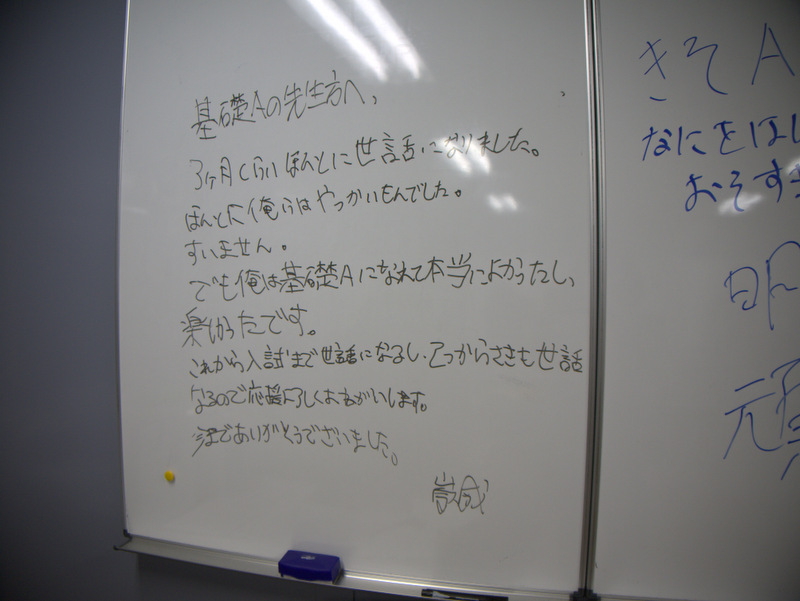 基礎Aの先生方へ、
3ヶ月くらいほんとに世話になりました。
ほんとに俺らはやっかいもんでした。
すいません。
でも俺は基礎Aになれて本当によかったし、
楽しかったです。
これから入試まで世話になるし、こっからさきも世話
なるので応援よろしくおねがいします。
今までありがとうございました。
きそA
なにをほし
おそすぎ
明
元